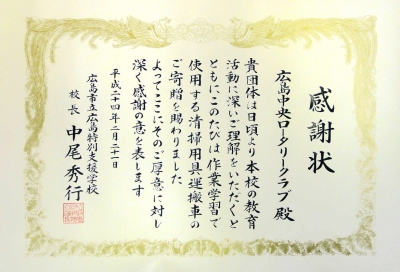 感謝状
広島中央ロータリークラブ 殿
貴団体は日頃より本校の教育
活動に深いご理解をいただくと
ともにこのたびは作業学習で
使用する清掃用具運搬車の
ご寄贈を賜わりました
よってここにそのご厚意に対し
深く感謝の意を表します
平成二十四年二月二十一日
広島市立広島特別支援学校
校長 中尾秀行